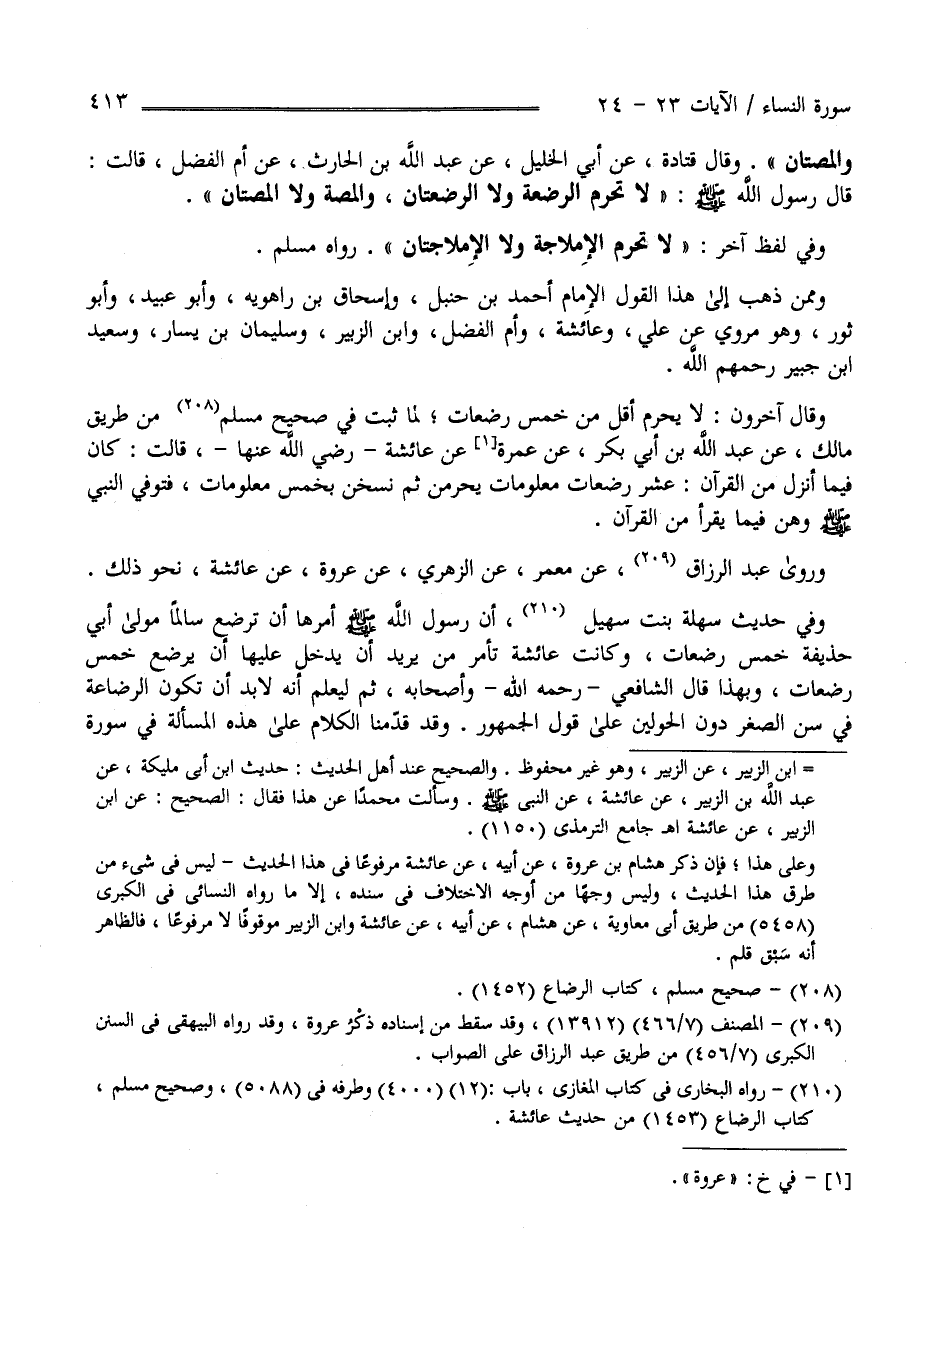 سورة النساء / الآيات ٢٣ - ٢٤ ٤١٣
والمصتان » . وقال قتادة ، عن أبي الخليل ، عن عبد اللَّه بن الحارث ، عن أم الفضل ، قالت :
قال رسول اللَّه ﷺ : « لا تحرم الرضعة ولا الرضعتان ، والمصة ولا المصتان » .
وفي لفظ آخر : « لا تحرم الإملاجة ولا الإملاجتان » . رواه مسلم .
وممن ذهب إلىٰ هذا القول الإمام أحمد بن حنبل ، وإسحاق بن راهويه ، وأبو عبيد ، وأبو
ثور ، وهو مروي عن علي ، وعائشة ، وأم الفضل ، وابن الزبير ، وسليمان بن يسار ، وسعيد
ابن جبير رحمهم اللَّه .
وقال آخرون : لا يحرم أقل من خمس رضعات ؛ لما ثبت في صحيح مسلم(٢٠٨) من طريق
مالك ، عن عبد اللَّه بن أبي بكر ، عن عمرة[١] عن عائشة - رضي اللَّه عنها - ، قالت : كان
فيما أنزل من القرآن : عشر رضعات معلومات يحرمن ثم نسخن بخمس معلومات ، فتوفي النبي
ﷺ وهن فيما يقرأ من القرآن .
وروىٰ عبد الرزاق (٢٠٩) ، عن معمر ، عن الزهري ، عن عروة ، عن عائشة ، نحو ذلك .
وفي حديث سهلة بنت سهيل (٢١٠) ، أن رسول اللَّه ﷺ أمرها أن ترضع سالمًا مولىٰ أبي
حذيفة خمس رضعات ، وكانت عائشة تأمر من يريد أن يدخل عليها أن يرضع خمس
رضعات ، وبهذا قال الشافعي - رحمه الله - وأصحابه ، ثم ليعلم أنه لابد أن تكون الرضاعة
في سن الصغر دون الحولين علىٰ قول الجمهور . وقد قدّمنا الكلام علىٰ هذه المسألة في سورة
= ابن الزبير ، عن الزبير ، وهو غير محفوظ . والصحيح عند أهل الحديث : حديث ابن أبى مليكة ، عن
عبد اللَّه بن الزبير ، عن عائشة ، عن النبى ﷺ . وسألت محمدًا عن هذا فقال : الصحيح : عن ابن
الزبير ، عن عائشة اهـ جامع الترمذى (١١٥٠) .
وعلى هذا ؛ فإن ذكر هشام بن عروة ، عن أبيه ، عن عائشة مرفوعًا فى هذا الحديث - ليس فى شىء من
طرق هذا الحديث ، وليس وجهًا من أوجه الاختلاف فى سنده ، إلا ما رواه النسائى فى الكبرى
(٥٤٥٨) من طريق أبى معاوية ، عن هشام ، عن أبيه ، عن عائشة وابن الزبير موقوفًا لا مرفوعًا ، فالظاهر
أنه سَبْق قلم .
(٢٠٨) - صحيح مسلم ، كتاب الرضاع (١٤٥٢) .
(٢٠٩) - المصنف (٤٦٦/٧) (١٣٩١٢) ، وقد سقط من إسناده ذكْرُ عروة ، وقد رواه البيهقى فى السنن
الكبرى (٤٥٦/٧) من طريق عبد الرزاق على الصواب .
(٢١٠) - رواه البخارى فى كتاب المغازى ، باب : (١٢) (٤٠٠٠) وطرفه فى (٥٠٨٨) ، وصحيح مسلم ،
كتاب الرضاع (١٤٥٣) من حديث عائشة .
[١] - في خ : « عروة » .